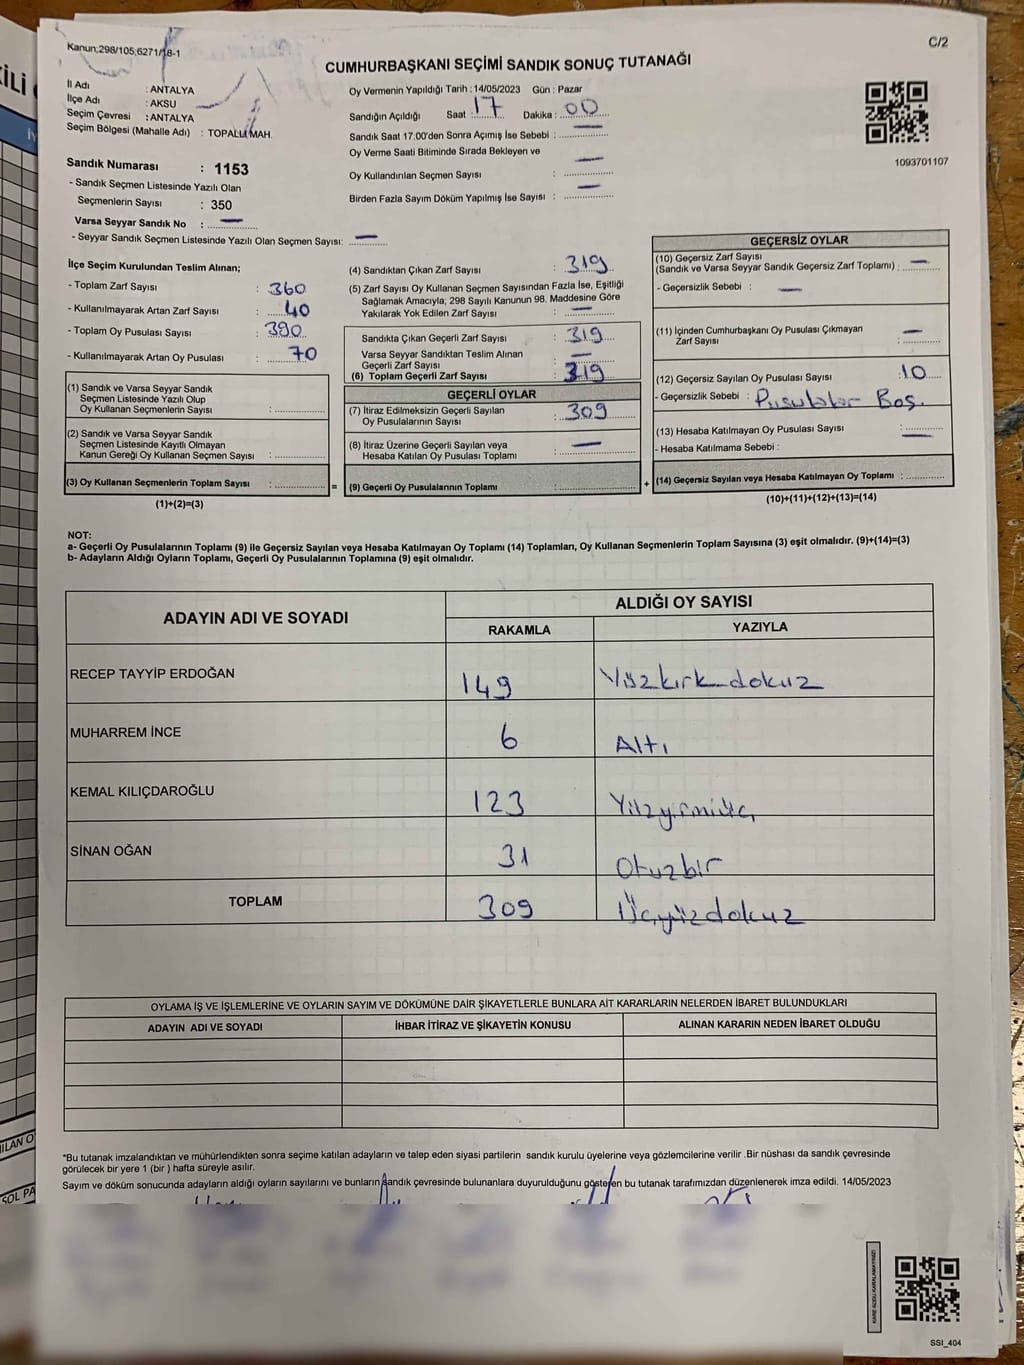 Kanun;298/105,6271/18-1
C/2
CUMHURBAŞKANI SEÇİMİ SANDIK SONUÇ TUTANAĞI
İl Adı : ANTALYA
İlçe Adı : AKSU
Seçim Çevresi : ANTALYA
Seçim Bölgesi (Mahalle Adı) : TOPALLI MAH.
Sandık Numarası : 1153
- Sandık Seçmen Listesinde Yazılı Olan
Seçmenlerin Sayısı : 350
Varsa Seyyar Sandık No : —
- Seyyar Sandık Seçmen Listesinde Yazılı Olan Seçmen Sayısı: —
Oy Vermenin Yapıldığı Tarih : 14/05/2023 Gün : Pazar
Sandığın Açıldığı Saat : 17 Dakika : 00
Sandık Saat 17:00'den Sonra Açımış İse Sebebi : —
Oy Verme Saati Bitiminde Sırada Bekleyen ve
Oy Kullandırılan Seçmen Sayısı : —
Birden Fazla Sayım Döküm Yapılmış İse Sayısı : —
1093701107
İlçe Seçim Kurulundan Teslim Alınan;
- Toplam Zarf Sayısı : 360
- Kullanılmayarak Artan Zarf Sayısı : 40
- Toplam Oy Pusulası Sayısı : 390
- Kullanılmayarak Artan Oy Pusulası : 70
(1) Sandık ve Varsa Seyyar Sandık
Seçmen Listesinde Yazılı Olup
Oy Kullanan Seçmenlerin Sayısı :
(2) Sandık ve Varsa Seyyar Sandık
Seçmen Listesinde Kayıtlı Olmayan
Kanun Gereği Oy Kullanan Seçmen Sayısı :
(3) Oy Kullanan Seçmenlerin Toplam Sayısı :
(1)+(2)=(3)
=
(4) Sandıktan Çıkan Zarf Sayısı : 319
(5) Zarf Sayısı Oy Kullanan Seçmen Sayısından Fazla İse, Eşitliği
Sağlamak Amacıyla; 298 Sayılı Kanunun 98. Maddesine Göre
Yakılarak Yok Edilen Zarf Sayısı : —
Sandıkta Çıkan Geçerli Zarf Sayısı : 319
Varsa Seyyar Sandıktan Teslim Alınan
Geçerli Zarf Sayısı : —
(6) Toplam Geçerli Zarf Sayısı : 319
GEÇERLİ OYLAR
(7) İtiraz Edilmeksizin Geçerli Sayılan
Oy Pusulalarının Sayısı : 309
(8) İtiraz Üzerine Geçerli Sayılan veya
Hesaba Katılan Oy Pusulası Toplamı : —
(9) Geçerli Oy Pusulalarının Toplamı :
+
GEÇERSİZ OYLAR
(10) Geçersiz Zarf Sayısı
(Sandık ve Varsa Seyyar Sandık Geçersiz Zarf Toplamı) : —
- Geçersizlik Sebebi : —
(11) İçinden Cumhurbaşkanı Oy Pusulası Çıkmayan
Zarf Sayısı : —
(12) Geçersiz Sayılan Oy Pusulası Sayısı : 10
- Geçersizlik Sebebi : Pusulalar Boş.
(13) Hesaba Katılmayan Oy Pusulası Sayısı : —
- Hesaba Katılmama Sebebi :
(14) Geçersiz Sayılan veya Hesaba Katılmayan Oy Toplamı :
(10)+(11)+(12)+(13)=(14)
NOT:
a- Geçerli Oy Pusulalarının Toplamı (9) ile Geçersiz Sayılan veya Hesaba Katılmayan Oy Toplamı (14) Toplamları, Oy Kullanan Seçmenlerin Toplam Sayısına (3) eşit olmalıdır. (9)+(14)=(3)
b- Adayların Aldığı Oyların Toplamı, Geçerli Oy Pusulalarının Toplamına (9) eşit olmalıdır.
ADAYIN ADI VE SOYADI
ALDIĞI OY SAYISI
RAKAMLA YAZIYLA
RECEP TAYYİP ERDOĞAN 149 Yüzkırk dokuz
MUHARREM İNCE 6 Altı
KEMAL KILIÇDAROĞLU 123 Yüzyirmiüç
SİNAN OĞAN 31 Otuzbir
TOPLAM 309 Üçyüzdokuz
OYLAMA İŞ VE İŞLEMLERİNE VE OYLARIN SAYIM VE DÖKÜMÜNE DAİR ŞİKAYETLERLE BUNLARA AİT KARARLARIN NELERDEN İBARET BULUNDUKLARI
ADAYIN ADI VE SOYADI İHBAR İTİRAZ VE ŞİKAYETİN KONUSU ALINAN KARARIN NEDEN İBARET OLDUĞU
*Bu tutanak imzalandıktan ve mühürlendikten sonra seçime katılan adayların ve talep eden siyasi partilerin sandık kurulu üyelerine veya gözlemcilerine verilir .Bir nüshası da sandık çevresinde
görülecek bir yere 1 (bir ) hafta süreyle asılır.
Sayım ve döküm sonucunda adayların aldığı oyların sayılarını ve bunların sandık çevresinde bulunanlara duyurulduğunu gösteren bu tutanak tarafımızdan düzenlenerek imza edildi. 14/05/2023
SSI_404